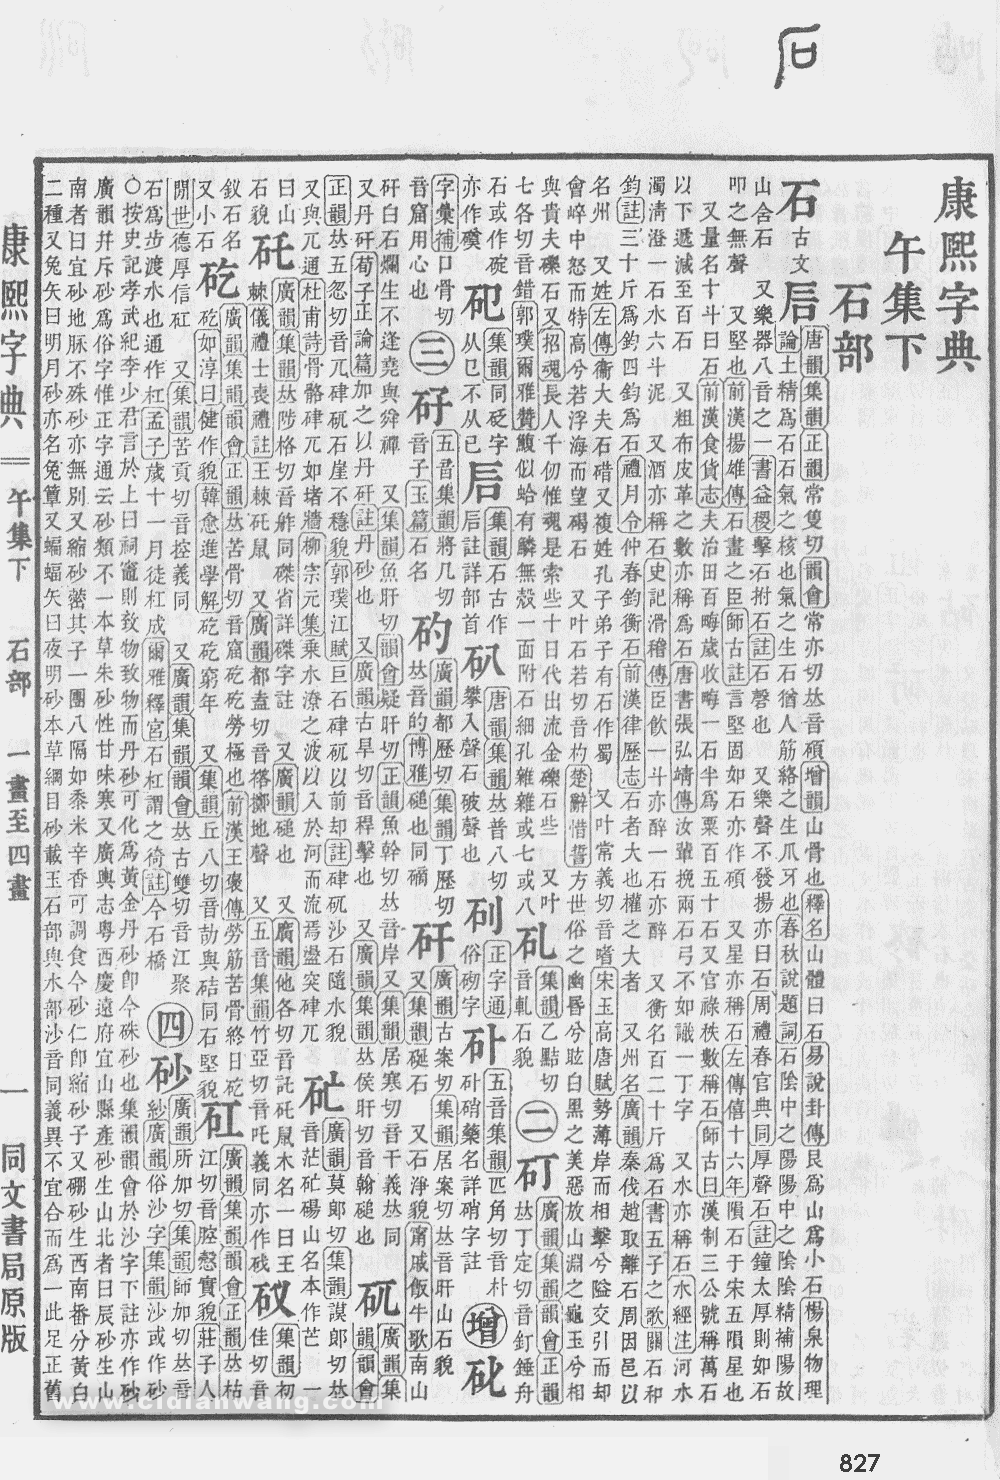 康熙字典
午集下
石部
石古文𥐘
唐韻集韻正韻常隻切韻會常亦切𠀤音碩增韻山骨也釋名山體曰石易說卦傳艮爲山爲小石楊泉物理
論土精爲石石氣之核也氣之生石猶人筋絡之生爪牙也春秋說題詞石陰中之陽陽中之陰陰精補陽故
山含石 又樂器八音之一書益稷擊石拊石註石磬也 又樂聲不發揚亦曰石周禮春官典同厚聲石註鐘太厚則如石
叩之無聲 又堅也前漢揚雄傳石畫之臣師古註言堅固如石亦作碩 又星亦稱石左傳僖十六年隕石于宋五隕星也
又量名十斗曰石前漢食貨志夫治田百畮歲收畮一石半爲粟百五十石又官祿秩數稱石師古曰漢制三公號稱萬石
以下遞減至百石 又粗布皮革之數亦稱爲石唐書張弘靖傳汝輩挽兩石弓不如識一丁字 又水亦稱石水經注河水
濁淸澄一石水六斗泥 又酒亦稱石史記滑稽傳臣飮一斗亦醉一石亦醉 又衡名百二十斤爲石書五子之歌關石和
鈞註三十斤爲鈞四鈞爲石禮月令仲春鈞衡石前漢律歷志石者大也權之大者 又州名廣韻秦伐趙取離石周因邑以
名州 又姓左傳衞大夫石碏又複姓孔子弟子有石作蜀 又叶常義切音嗜宋玉高唐賦勢薄岸而相擊兮隘交引而却
會崪中怒而特高兮若浮海而望碣石 又叶石若切音杓楚辭惜誓方世俗之幽昏兮眩白黑之美惡放山淵之龜玉兮相
與貴夫礫石又招魂長人千仞惟魂是索些十日代出流金礫石些 又叶
七各切音錯郭璞爾雅贊鰒似蛤有鱗無殼一面附石細孔雜雜或七或八
石或作䃁
𥐙集韻乙點切音軋石貌
二
矴𠀤丁定切音釘錘舟石或作碇亦作磸
𥐚集韻同砭字从㔾不从已
𥐘集韻石古作𥐘註詳部首
𥐛唐韻集韻𠀤普八切攀入聲石破聲也
𥐝正字通俗砌字
𥐞五音集韻匹角切音朴𥐞硝藥名詳硝字註
增
𥐟字彙補口骨切音窟用心也
三
矷五音集韻將几切音子玉篇石名
矽
矸廣韻古案切集韻居案切𠀤音肝山石貌
矹廣韻集韻韻會正韻𠀤五忽切音兀硉矹石崖不穩貌郭璞江賦巨石硉矹以前却註硉矹沙石隨水貌
又與兀通杜甫詩骨骼硉兀如堵牆柳宗元集乘水潦之波以入於河而流焉盪突硉兀
䂃廣韻莫郞切集韻謨郞切𠀤音茫䂃碭山名本作芒
矺廣韻集韻𠀤陟格切音舴同磔省詳磔字註
砐集韻初佳切音釵石名
矻廣韻集韻韻會正韻𠀤苦骨切音窟矻矻勞極也前漢王褒傳勞筋苦骨終日矻矻如淳曰健作貌韓愈進學解矻矻窮年 又集韻丘八切音劼與硈同石堅貌
又小石
矼廣韻集韻韻會正韻𠀤枯江切音腔慤實貌莊子人閒世德厚信矼 又集韻苦貢切音控義同 又廣韻集韻韻會𠀤古雙切音江聚
石爲步渡水也通作杠孟子歲十一月徒杠成爾雅釋宮石杠謂之徛註今石橋
四
砂廣韻所加切集韻師加切𠀤音紗廣韻俗沙字集韻沙或作砂
○按史記孝武紀李少君言於上曰祠竈則致物致物而丹砂可化爲黃金丹砂卽今硃砂也集韻韻會於沙字下註亦作砂
廣韻幷斥砂爲俗字惟正字通云砂類不一本草朱砂性甘味寒又廣輿志粵西慶遠府宜山縣產砂生山北者曰辰砂生山
南者曰宜砂地脈不殊砂亦無別又縮砂蔤其子一團八隔如黍米辛香可調食今砂仁卽縮砂子又硼砂生西南番分黃白
二種又兔矢曰明月砂亦名兔蕈又蝙蝠矢曰夜明砂本草綱目砂載玉石部與水部沙音同義異不宜合而爲一此足正舊
康熙字典
午集下
石部
一畫至四畫
一
同文書局原版
www.cidianwang.com
827
石